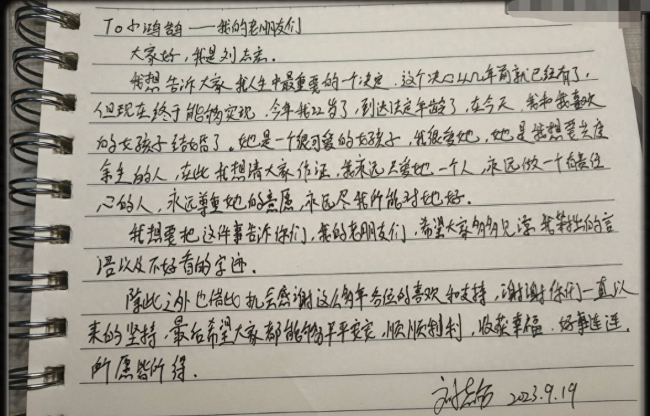 To小鸿鹄——我的老朋友们
大家好,我是刘志宏.
我想告诉大家我人生中最重要的一个决定,这个决心从几年前就已经有了,
但现在终于能够实现,今年我22岁了,到达法定年龄了,在今天,我和我喜欢
的女孩子结婚了.她是一个很可爱的女孩子,我很爱她,她是我想要共度
余生的人,在此我想请大家作证,我永远只爱她一个人,永远做一个有责任
心的人,永远尊重她的意愿,永远尽我所能对她好.
我想要把这件事告诉你们,我的老朋友们,希望大家多多见谅我笨拙的言
语以及不好看的字迹.
除此之外也借此机会感谢这么多年各位的喜欢和支持,谢谢你们一直以
来的坚持,最后希望大家都能够平平安安,顺顺利利,收获幸福,好事连连,
所愿皆所得.
刘志宏 2023.9.19